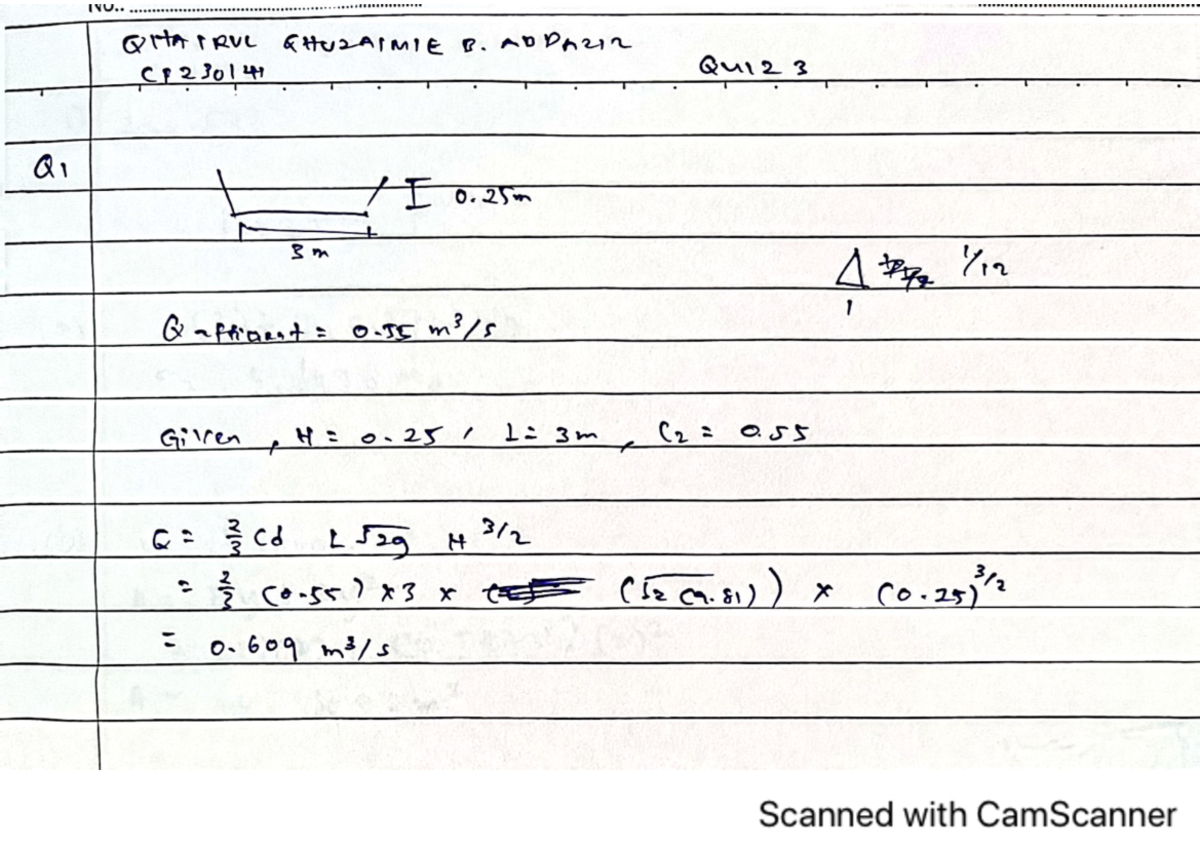 No.:
QHAIRUL QHUZAIMIE B. ADDAZIR
CF230141
QUIZ 3
Q1
0.25m
3 m
1/12
1
Q = 0.55 m³/s
Given, H = 0.25, L = 3m, C2 = 0.55
Q = 2/3 Cd L √2g H 3/2
= 2/3 (0.55) × 3 × (√2 (9.81)) × (0.25)3/2
= 0.609 m³/s
Scanned with CamScanner